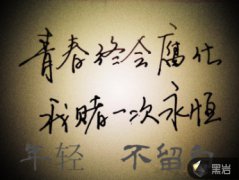 青春终会腐化
我赌一次永恒
年轻 不留
黑岩